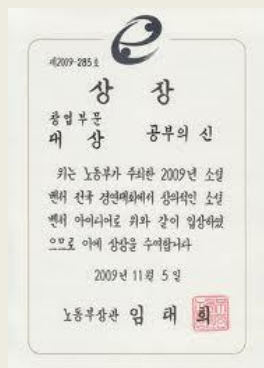 제2009-285호
상 장
창업부문
대 상 공부의 신
귀는 노동부가 주최한 2009년 소셜
벤처 전국 경연대회에서 창의적인 소셜
벤처 아이디어로 위와 같이 입상하였
으므로 이에 상장을 수여합니다
2009년 11월 5일
노동부장관 임 태 희